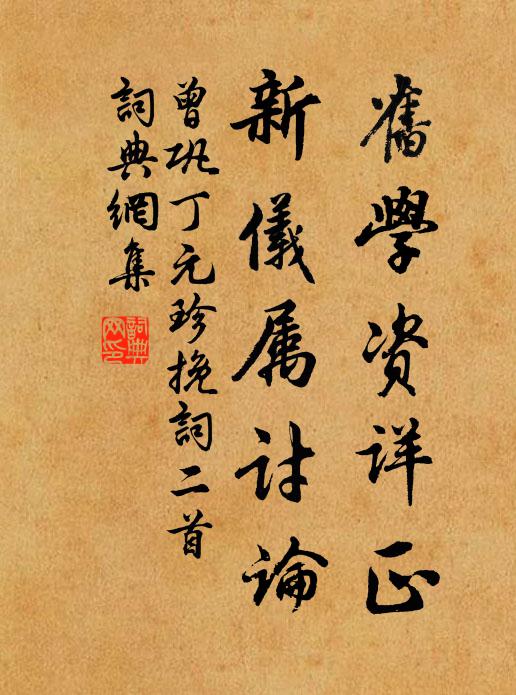 舊學资详正
新儀属討論
曾巩丁元珍挽詞二首
詞典網集
詞典网印